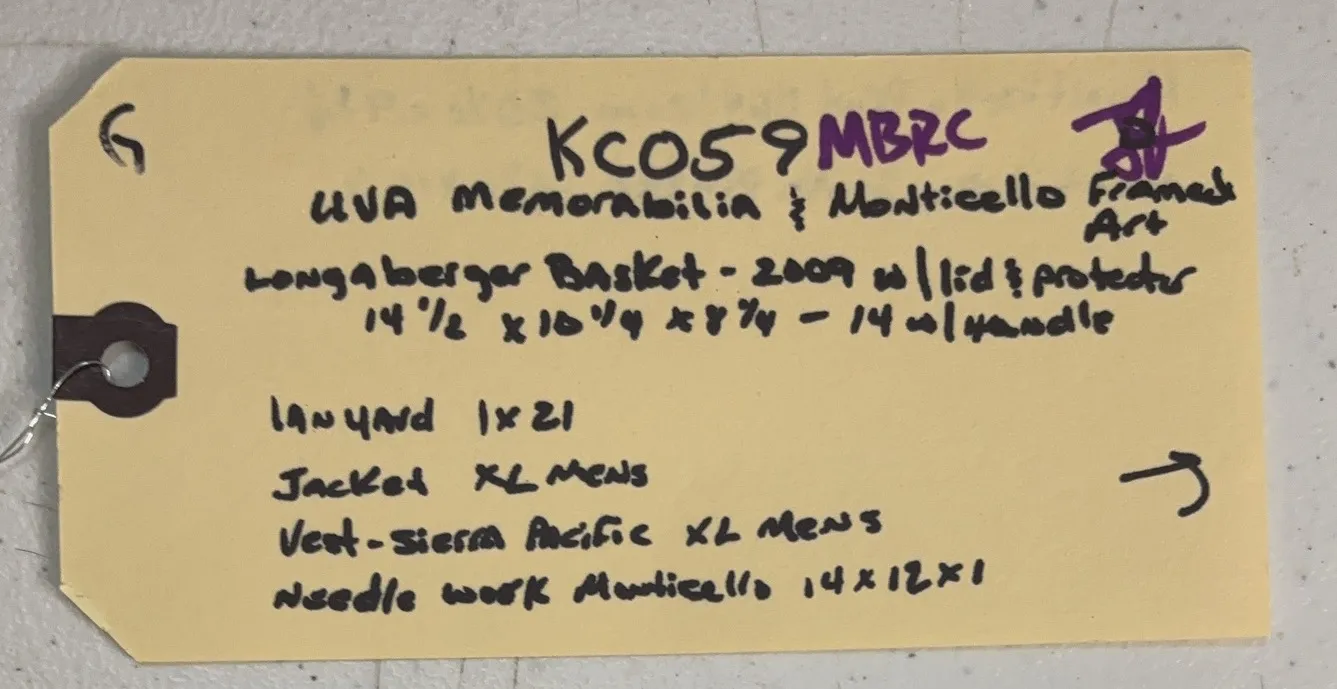 G
KC059 MBRC
UVA Memorabilia & Monticello Framed
Art
Longaberger Basket - 2009 w/lid & protector
14 1/2 x 10 1/4 x 8 3/4 - 14 w/Handle
lanyard 1x21
Jacket XL Mens
Vest - Sierra Pacific XL Mens
Needle work Monticello 14x12x1